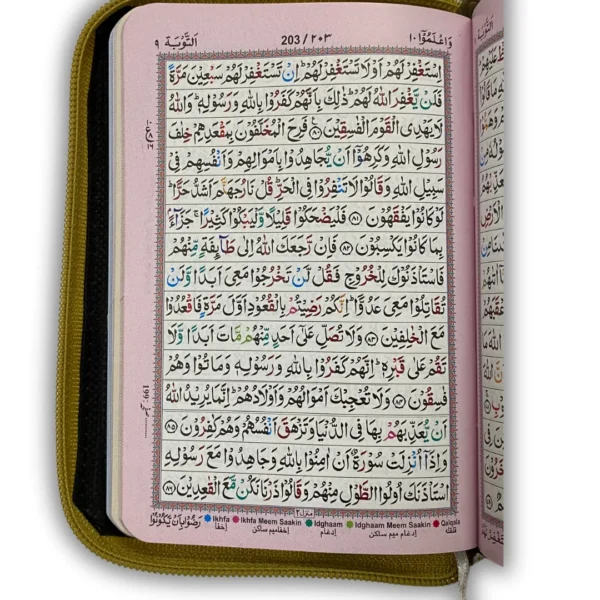 اَلتَّوْبَة ٩
203/٢٠٣
وَاعْلَمُوْٓا ١٠
اِسْتَغْفِرْ لَهُمْ اَوْ لَا تَسْتَغْفِرْ لَهُمْ ؕ اِنْ تَسْتَغْفِرْ لَهُمْ سَبْعِيْنَ مَرَّةً
فَلَنْ يَّغْفِرَ اللّٰهُ لَهُمْ ؕ ذٰلِكَ بِاَنَّهُمْ كَفَرُوْا بِاللّٰهِ وَرَسُوْلِهٖ ؕ وَاللّٰهُ
لَا يَهْدِى الْقَوْمَ الْفٰسِقِيْنَ ﴿٨٠﴾ فَرِحَ الْمُخَلَّفُوْنَ بِمَقْعَدِهِمْ خِلٰفَ
رَسُوْلِ اللّٰهِ وَكَرِهُوْٓا اَنْ يُّجَاهِدُوْا بِاَمْوَالِهِمْ وَاَنْفُسِهِمْ فِىْ
سَبِيْلِ اللّٰهِ وَقَالُوْا لَا تَنْفِرُوْا فِى الْحَرِّ ؕ قُلْ نَارُ جَهَنَّمَ اَشَدُّ حَرًّا ؕ
لَوْ كَانُوْا يَفْقَهُوْنَ ﴿٨١﴾ فَلْيَضْحَكُوْا قَلِيْلًا وَّلْيَبْكُوْا كَثِيْرًا ۚ جَزَآءًۢ
بِمَا كَانُوْا يَكْسِبُوْنَ ﴿٨٢﴾ فَاِنْ رَّجَعَكَ اللّٰهُ اِلٰى طَآئِفَةٍ مِّنْهُمْ
فَاسْتَاْذَنُوْكَ لِلْخُرُوْجِ فَقُلْ لَّنْ تَخْرُجُوْا مَعِىَ اَبَدًا وَّلَنْ
تُقَاتِلُوْا مَعِىَ عَدُوًّا ؕ اِنَّكُمْ رَضِيْتُمْ بِالْقُعُوْدِ اَوَّلَ مَرَّةٍ فَاقْعُدُوْا
مَعَ الْخٰلِفِيْنَ ﴿٨٣﴾ وَلَا تُصَلِّ عَلٰٓى اَحَدٍ مِّنْهُمْ مَّاتَ اَبَدًا وَّلَا
تَقُمْ عَلٰى قَبْرِهٖ ؕ اِنَّهُمْ كَفَرُوْا بِاللّٰهِ وَرَسُوْلِهٖ وَمَاتُوْا وَهُمْ
فٰسِقُوْنَ ﴿٨٤﴾ وَلَا تُعْجِبْكَ اَمْوَالُهُمْ وَاَوْلَادُهُمْ ؕ اِنَّمَا يُرِيْدُ اللّٰهُ
اَنْ يُّعَذِّبَهُمْ بِهَا فِى الدُّنْيَا وَتَزْهَقَ اَنْفُسُهُمْ وَهُمْ كٰفِرُوْنَ ﴿٨٥﴾
وَاِذَآ اُنْزِلَتْ سُوْرَةٌ اَنْ اٰمِنُوْا بِاللّٰهِ وَجَاهِدُوْا مَعَ رَسُوْلِهِ
اسْتَاْذَنَكَ اُولُوا الطَّوْلِ مِنْهُمْ وَقَالُوْا ذَرْنَا نَكُنْ مَّعَ الْقٰعِدِيْنَ ﴿٨٦﴾
منزل ٢
رَضُوْا بِاَنْ يَّكُوْنُوْا
Ikhfa Ikhfa Meem Saakin Idghaam Idghaam Meem Saakin Qalqala
اخفا اخفا میم ساکن ادغام ادغام میم ساکن قلقلہ
199